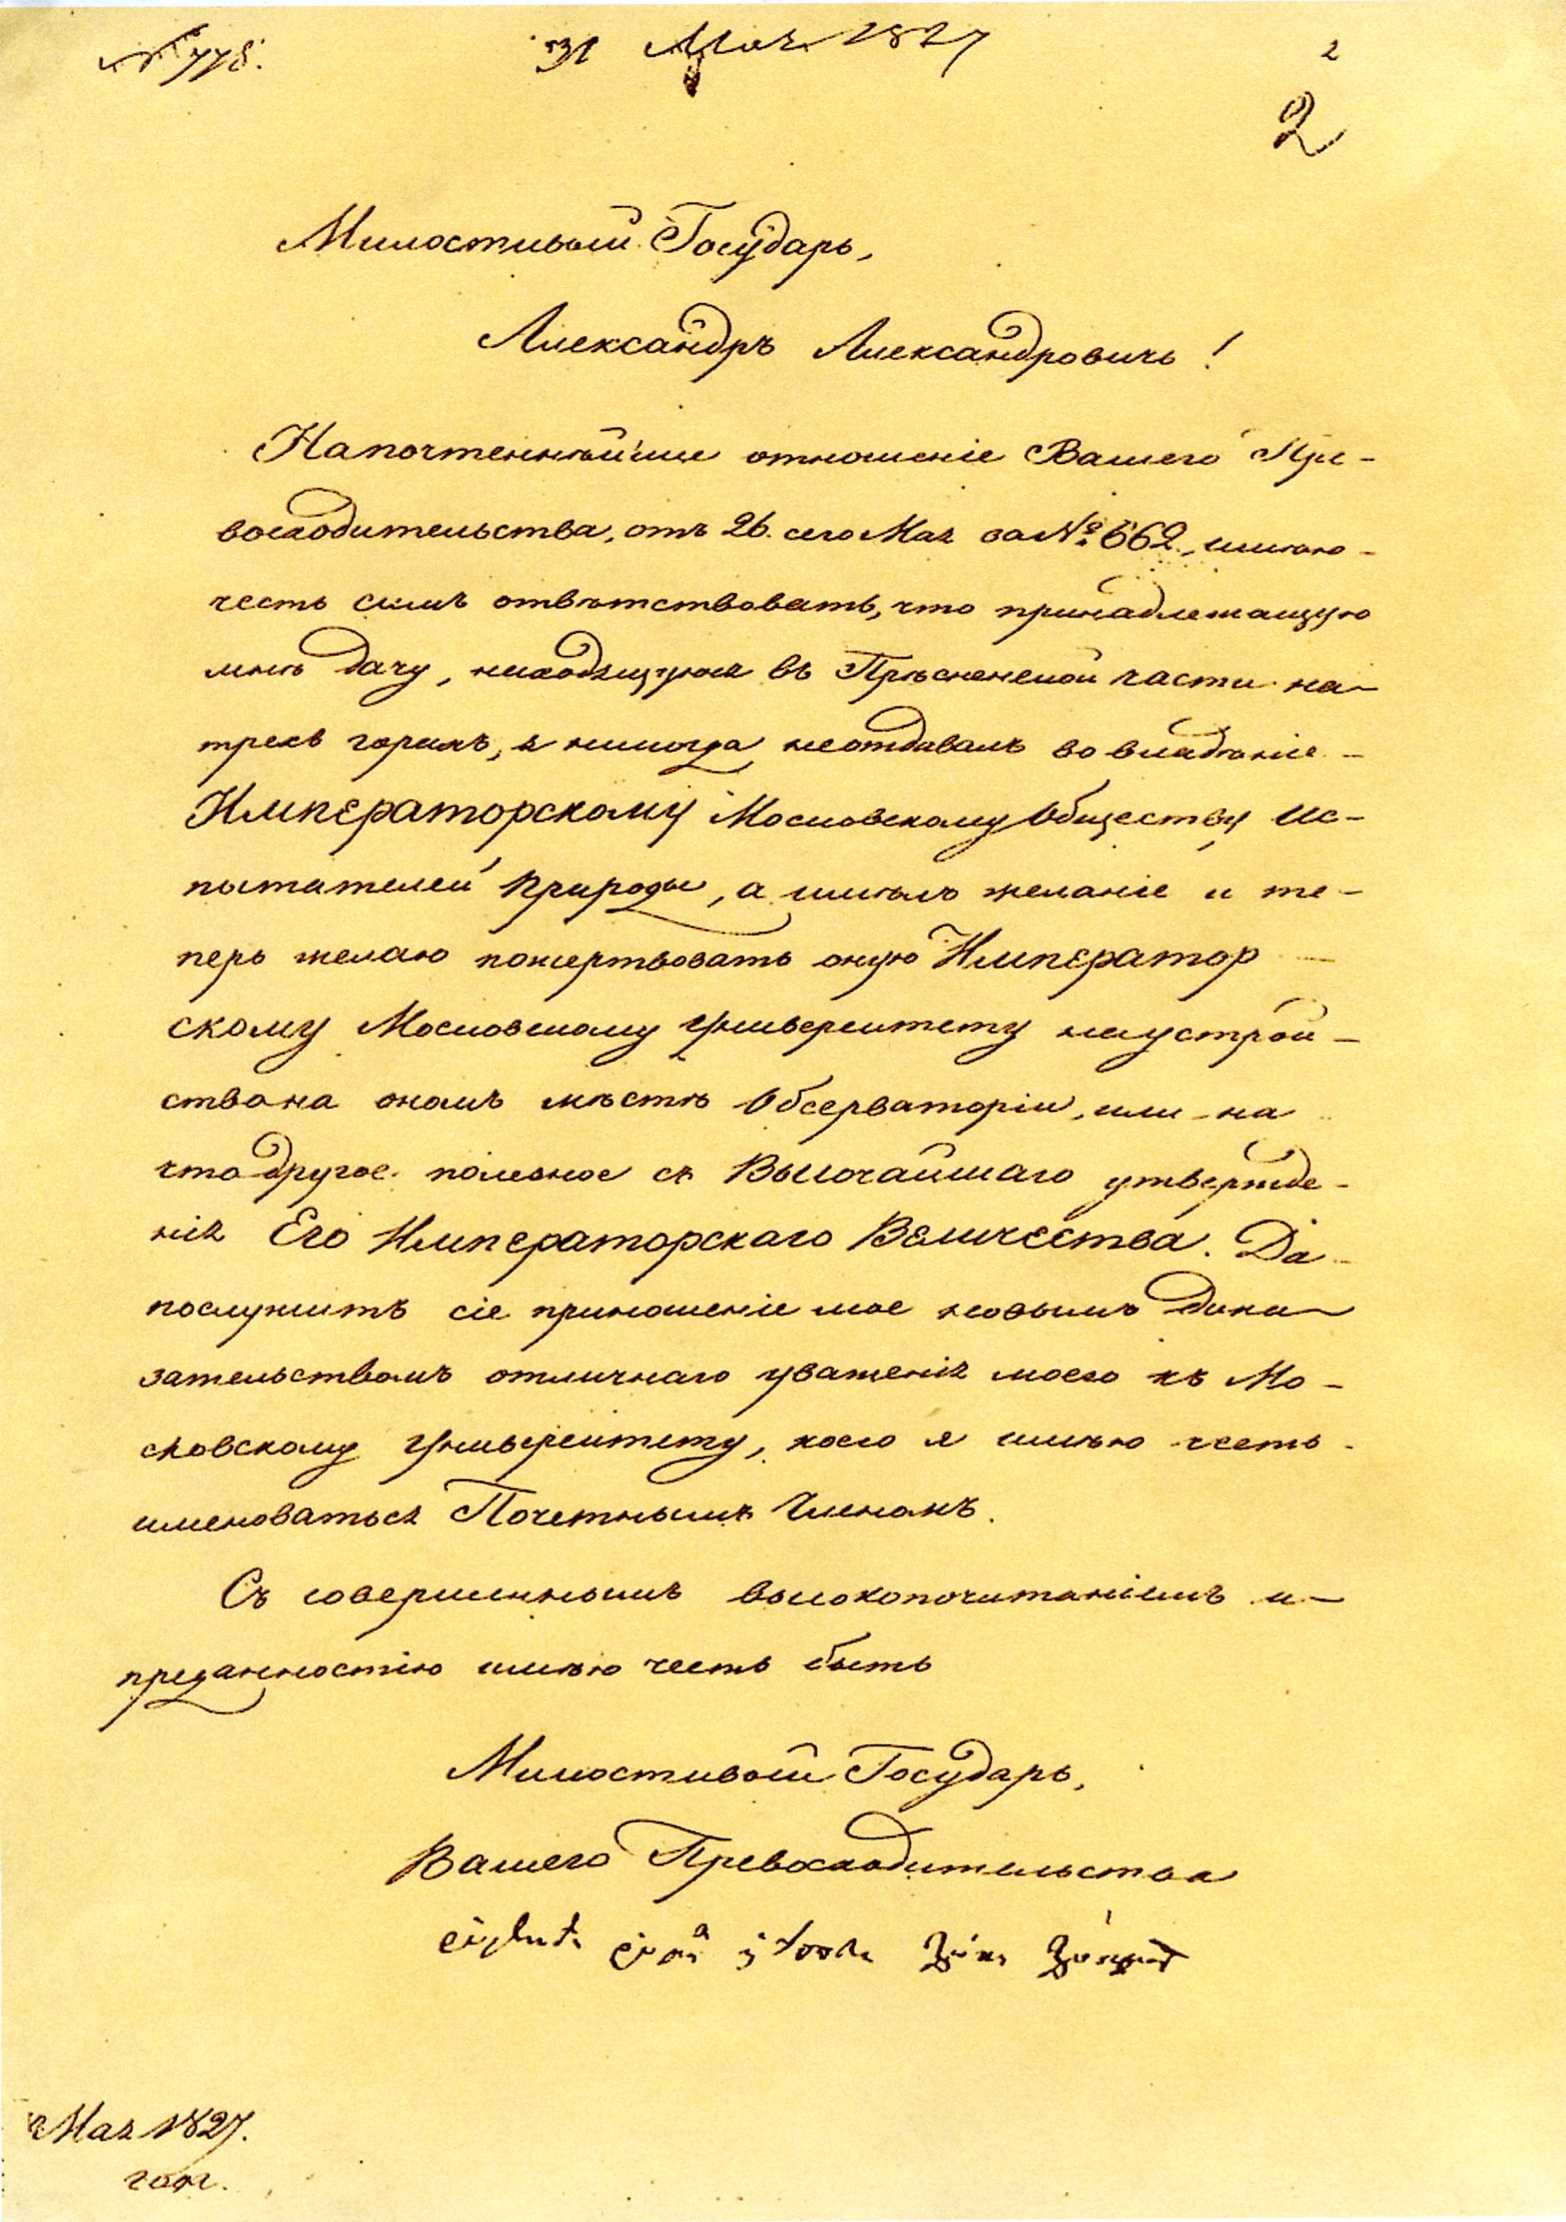 № 778.
31 Мая 1827
2
2
Милостивый Государь,
Александръ Александровичь!
На почтеннѣйшие отношеніе Вашего Пре-
восходительства, отъ 26. сего Мая за № 662, имѣю
честь симъ отвѣтствовать, что принадлежащую
мнѣ дачу, находящуюся въ Прѣсненской части на
трехъ горахъ, я никогда неотдавалъ во владѣніе
Императорскому Московскому Обществу Ис-
пытателей Природы, а имѣлъ желаніе и те-
перь желаю пожертвовать оную Император
скому Московскому Университету на устрой-
ство на ономъ мѣстѣ Обсерваторіи, или на
что другое полезное съ Высочайшаго утвержде-
нія Его Императорскаго Величества. Да
послужитъ сіе приношеніе мое новымъ дока
зательствомъ отличнаго уваженія моего къ Мо-
сковскому Университету, коего я имѣю честь
именоваться Почетнымъ Членомъ.
Съ совершеннымъ высокопочитаніемъ и
преданностію имѣю честь быть
Милостивый Государь,
Вашего Превосходительства
Мая 1827.
года.